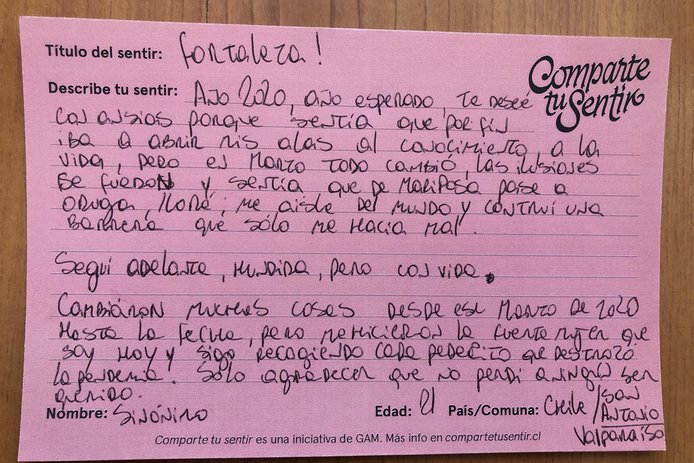 Título del sentir: fortaleza!
Comparte tu Sentir
Describe tu sentir: Año 2020, año esperado, te deseé
con ansias porque sentía que por fin
iba a abrir mis alas al conocimiento, a la
vida, pero en Marzo todo cambió, las ilusiones
se fueron y sentía que de mariposa pase a
oruga, lloré, me aisle del mundo y contruí una
barrera que sólo me hacia mal.
Seguí adelante, hundida, pero con vida.
Cambiáron muchas cosas desde ese Marzo de 2020
hasta la fecha, pero me hicieron la fuerte mujer que
soy hoy y sigo recogiendo cada pedacito que destrozó
la pandemia. Sólo agradecer que no perdi a ningún ser
querido.
Nombre: Sinónimo
Edad: 21
País/Comuna: Chile / San Antonio
Valparaíso
Comparte tu sentir es una iniciativa de GAM. Más info en compartetusentir.cl